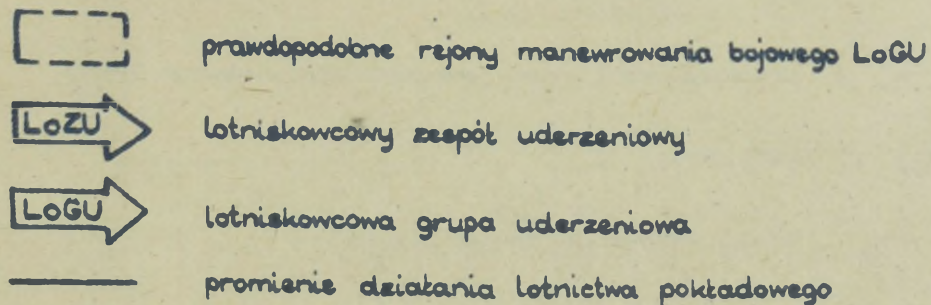 prawdopodobne rejony manewrowania bojowego LoGU
LoZU lotniskowcowy zespół uderzeniowy
LoGU lotniskowcowa grupa uderzeniowa
promienie działania lotnictwa pokładowego